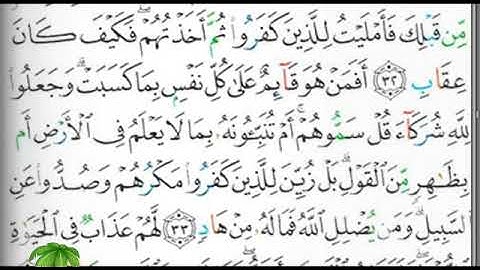 مِّن قَبْلِكَ فَأَمْلَيْتُ لِلَّذِينَ كَفَرُوا۟ ثُمَّ أَخَذْتُهُمْ ۖ فَكَيْفَ كَانَ
عِقَابِ ٣٢ أَفَمَنْ هُوَ قَآئِمٌ عَلَىٰ كُلِّ نَفْسٍۭ بِمَا كَسَبَتْ ۗ وَجَعَلُوا۟
لِلَّهِ شُرَكَآءَ قُلْ سَمُّوهُمْ ۚ أَمْ تُنَبِّـُٔونَهُۥ بِمَا لَا يَعْلَمُ فِى ٱلْأَرْضِ أَم
بِظَـٰهِرٍ مِّنَ ٱلْقَوْلِ ۗ بَلْ زُيِّنَ لِلَّذِينَ كَفَرُوا۟ مَكْرُهُمْ وَصُدُّوا۟ عَنِ
ٱلسَّبِيلِ ۗ وَمَن يُضْلِلِ ٱللَّهُ فَمَا لَهُۥ مِنْ هَادٍ ٣٣ لَّهُمْ عَذَابٌ فِى ٱلْحَيَوٰةِ